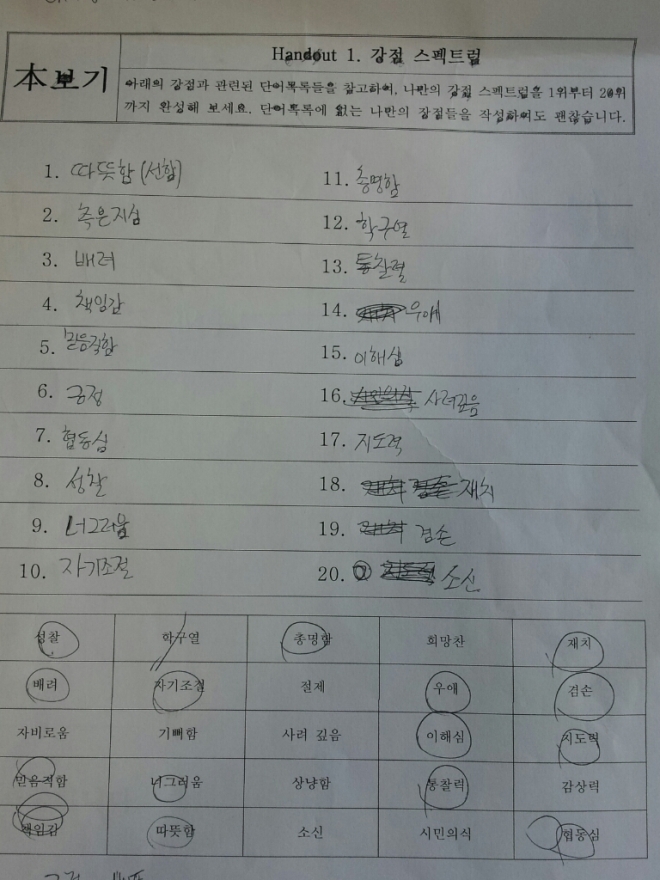 本보기
Handout 1. 강점 스펙트럼
아래의 강점과 관련된 단어목록들을 참고하여, 나만의 강점 스펙트럼을 1위부터 20위
까지 완성해 보세요. 단어목록에 없는 나만의 강점들을 작성하여도 괜찮습니다.
1. 따뜻함 (선함)
2. 측은지심
3. 배려
4. 책임감
5. 믿음직함
6. 긍정
7. 협동심
8. 성찰
9. 너그러움
10. 자기조절
11. 총명함
12. 학구열
13. 통찰력
14. 우애
15. 이해심
16. 사려깊음
17. 지도력
18. 재치
19. 겸손
20. 소신
성찰 학구열 총명함 희망찬 재치
배려 자기조절 절제 우애 겸손
자비로움 기뻐함 사려 깊음 이해심 지도력
믿음직함 너그러움 상냥함 통찰력 감상력
책임감 따뜻함 소신 시민의식 협동심